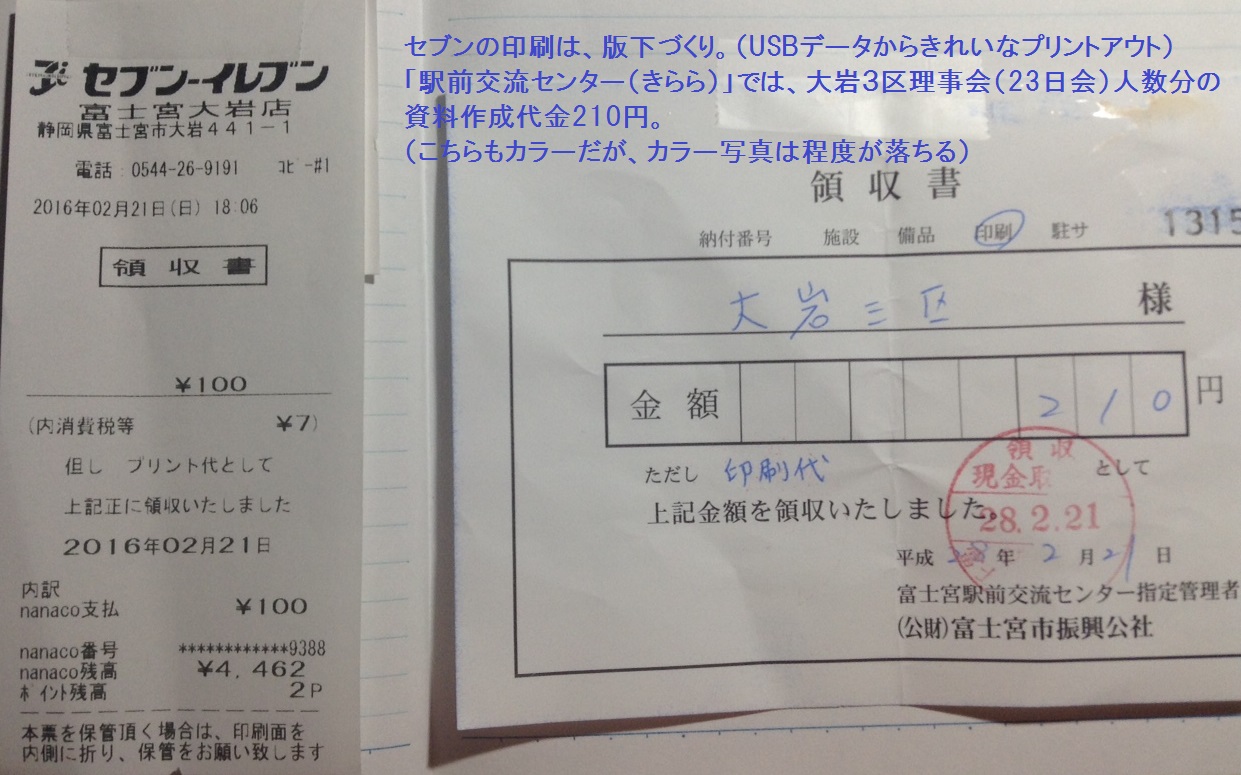 セブンの印刷は、版下づくり。（USBデータからきれいなプリントアウト）
「駅前交流センター（きらら）」では、大岩３区理事会（23日会）人数分の
資料作成代金210円。
（こちらもカラーだが、カラー写真は程度が落ちる）
セブン-イレブン
富士宮大岩店
静岡県富士宮市大岩４４１－１
電話：0544-26-9191 ｺﾋﾟｰ#1
2016年02月21日(日) 18:06
領収書
¥100
(内消費税等 ¥7)
但し プリント代として
上記正に領収いたしました
2016年02月21日
内訳
nanaco支払 ¥100
nanaco番号 ************9388
nanaco残高 ¥4,462
ﾎﾟｲﾝﾄ残高 2P
本票を保管頂く場合は、印刷面を
内側に折り、保管をお願い致します
領収書
納付番号 施設 備品 印刷 駐サ 1315
大岩三区 様
金額 210円
ただし 印刷代 として
上記金額を領収いたしました。
領収
現金取
28.2.21
平成 28年 2月 21日
富士宮駅前交流センター指定管理者
(公財)富士宮市振興公社